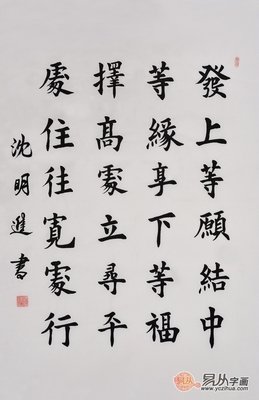 發上等願結中
等緣享下等福
擇高處立尋平
處住往寬處行
沈明書
易从字画
www.yczihua.com